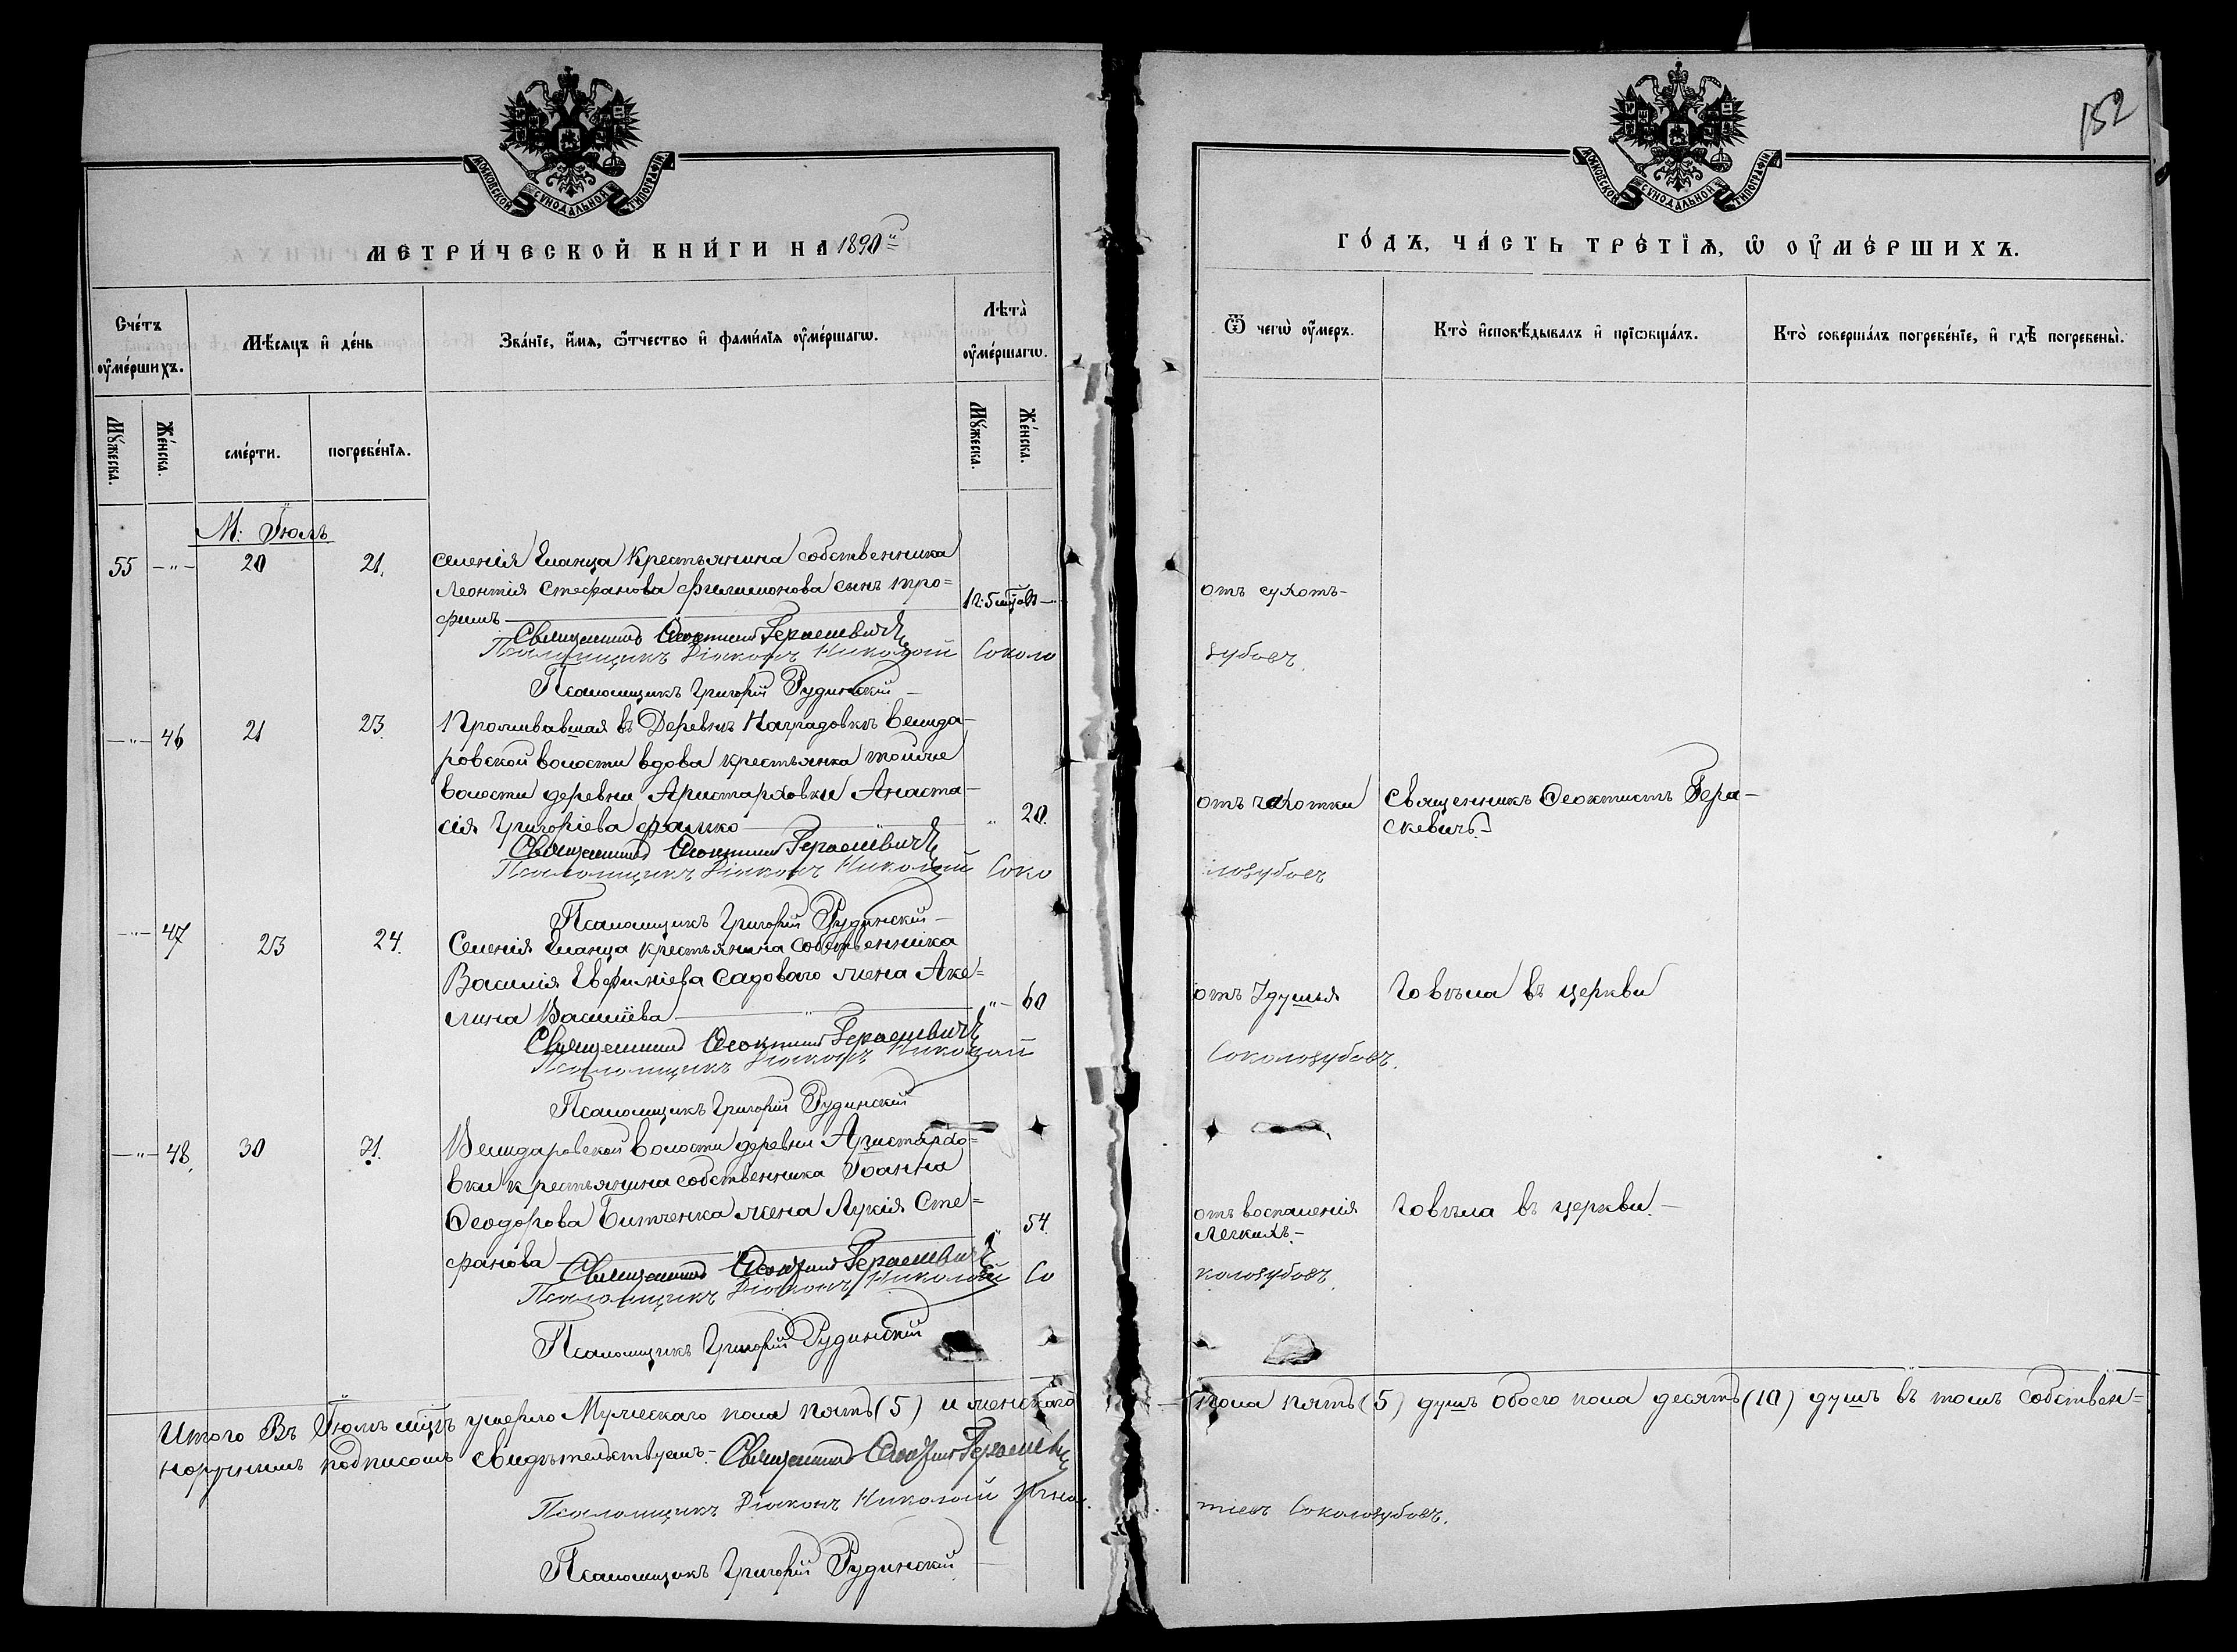 152
МОСКОВСКОЙ СѴНОДАЛЬНОЙ ТИПОГРАФІИ
МОСКОВСКОЙ СѴНОДАЛЬНОЙ ТИПОГРАФІИ
МЕТРИ́ЧЕСКОЙ КНИ́ГИ НА 1890й
ГО́ДЪ, ЧА́СТЬ ТРЕ́ТЇѦ, Ѡ҆ ОУ҆МЕ́РШИХЪ.
Сче́тъ оу҆ме́ршихъ.
Мѣ́сяцъ и҆ де́нь
Зва́нїе, и҆́мѧ, ѻ҆́тчество и҆ фами́лїѧ оу҆ме́ршагѡ.
Лѣта̀ оу҆ме́ршагѡ.
Ѿ чегѡ̀ оу҆́меръ.
Кто̀ и҆сповѣ́дывалъ и҆ прїѡбща́лъ.
Кто̀ соверша́лъ погребе́нїе, и҆ гдѣ̀ погребены̀.
Мꙋ́жеска.
Же́нска.
сме́рти.
погребе́нїѧ.
Мꙋ́жеска.
Же́нска.
М: Іюль
55 -"- 20 21. селенія Еланца Крестьянина собственника
Леонтія Стефанова Филимонова сынъ Тро=
фимъ
12: 5 мцовъ отъ сухотъ-
Священникъ Ѳеоктистъ Гераскевичъ
Псаломщикъ Діаконъ Николай Соколозубовъ.
Псаломщикъ Григорій Рудинскій
-"- 46 21 23. Проживавшая въ Деревнѣ Наградовкѣ Велида-
ровской волости вдова крестьянка тойже
волости деревни Аристарховки Анаста-
сія Григоріева Фалько " 20. отъ чахотки Священникъ Ѳеоктистъ Гера-
скевичъ.-
Священникъ Ѳеоктистъ Гераскевичъ
Псаломщикъ Діаконъ Николай Соколозубовъ
Псаломщикъ Григорій Рудинскій
-"- 47 23 24. Селенія Еланца крестьянина собственника
Василія Евфиміева Садоваго жена Аке=
лина Василіева "- 60 отъ Удушья Говѣла въ церкви
Священникъ Ѳеоктистъ Гераскевичъ
Псаломщикъ Діаконъ Николай Соколозубовъ.
Псаломщикъ Григорій Рудинскій
-"- 48. 30 31. Велидаровской волости деревни Аристархо=
вки крестьянина собственника Іоанна
Ѳеодорова Битченка жена Лукія Сте=
фанова " 54. отъ воспаленія
легкихъ.- Говѣла въ церкви.-
Священникъ Ѳеоктистъ Гераскевичъ
Псаломщикъ Діаконъ Николай Соколозубовъ.
Псаломщикъ Григорій Рудинскій
Итого Въ Іюлѣ мцѣ умерло Мужескаго пола пять (5) и женскаго пола пять (5) душъ обоего пола десять (10) душъ въ томъ собствен=
норучнымъ подписомъ свидѣтельствуемъ.- Священникъ Ѳеоктистъ Гераскевичъ
Псаломщикъ Діаконъ Николай Игнатіевъ Соколозубовъ.
Псаломщикъ Григорій Рудинскій